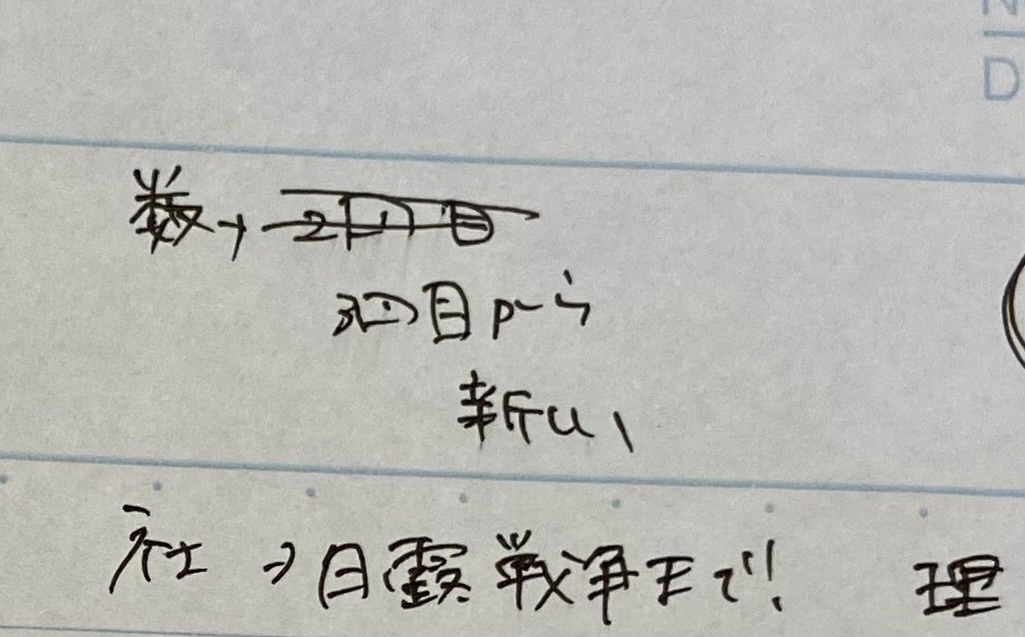 数→2回目
3回目から
新しい
社→日露戦争まで! 理